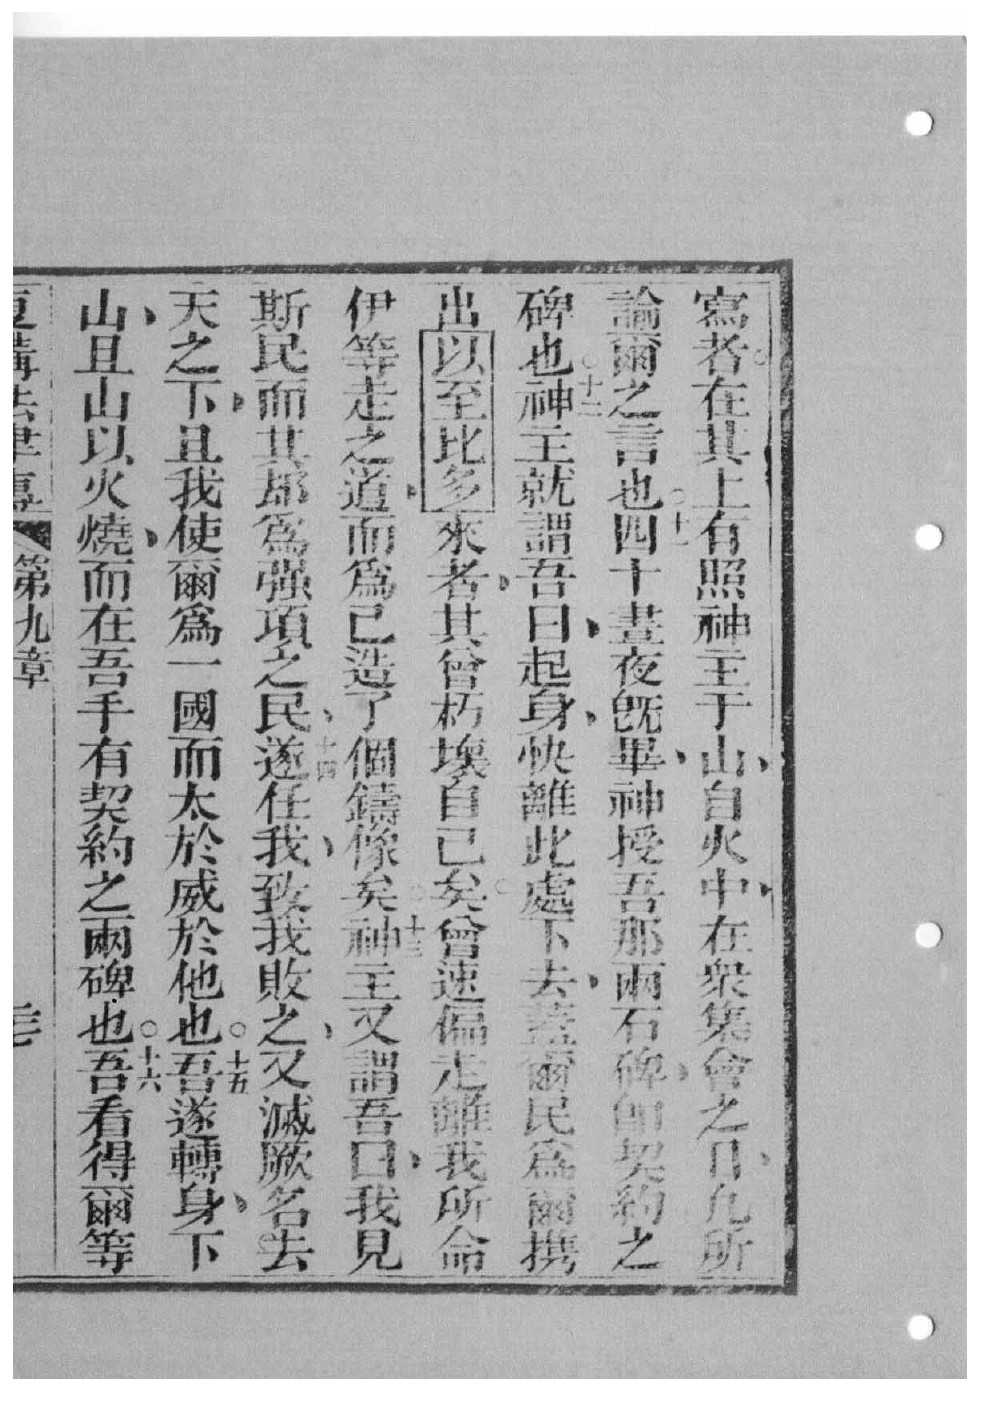 寫者○在其上有照神主于山、自火中、在衆集會之日、凡所
諭爾之言也○十一四十晝夜旣畢、神授吾那兩石碑、卽契約之
碑也○十二神主就謂吾曰、起身、快離此處下去、蓋爾民爲爾攜
出以至比多來者、其曾朽壞自己矣○曾速偏走離我所命
伊等走之道、而爲已造了個鑄像矣○十三神主又謂吾曰、我見
斯民而其郡爲强項之民、十四遂任我、致我敗之、又滅厥名去
天之下、且我使爾爲一國而太於威於他也○十五吾遂轉身、下
山、且山以火燒、而在吾手有契約之兩碑也○十六吾看得爾等
復講法律書 第九章